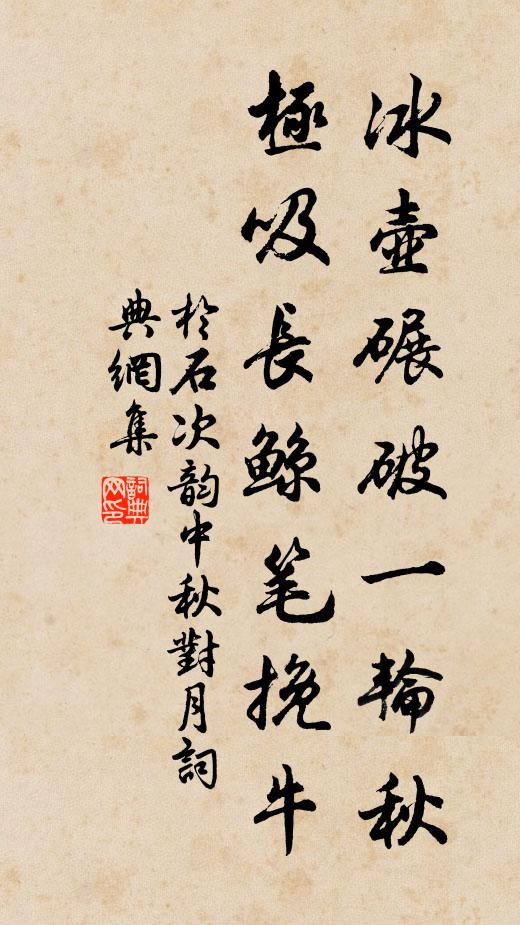 冰壺碾破一輪秋
極吸長鯨笔挽牛
於石次韵中秋對月詞
典網集
詞典
网印